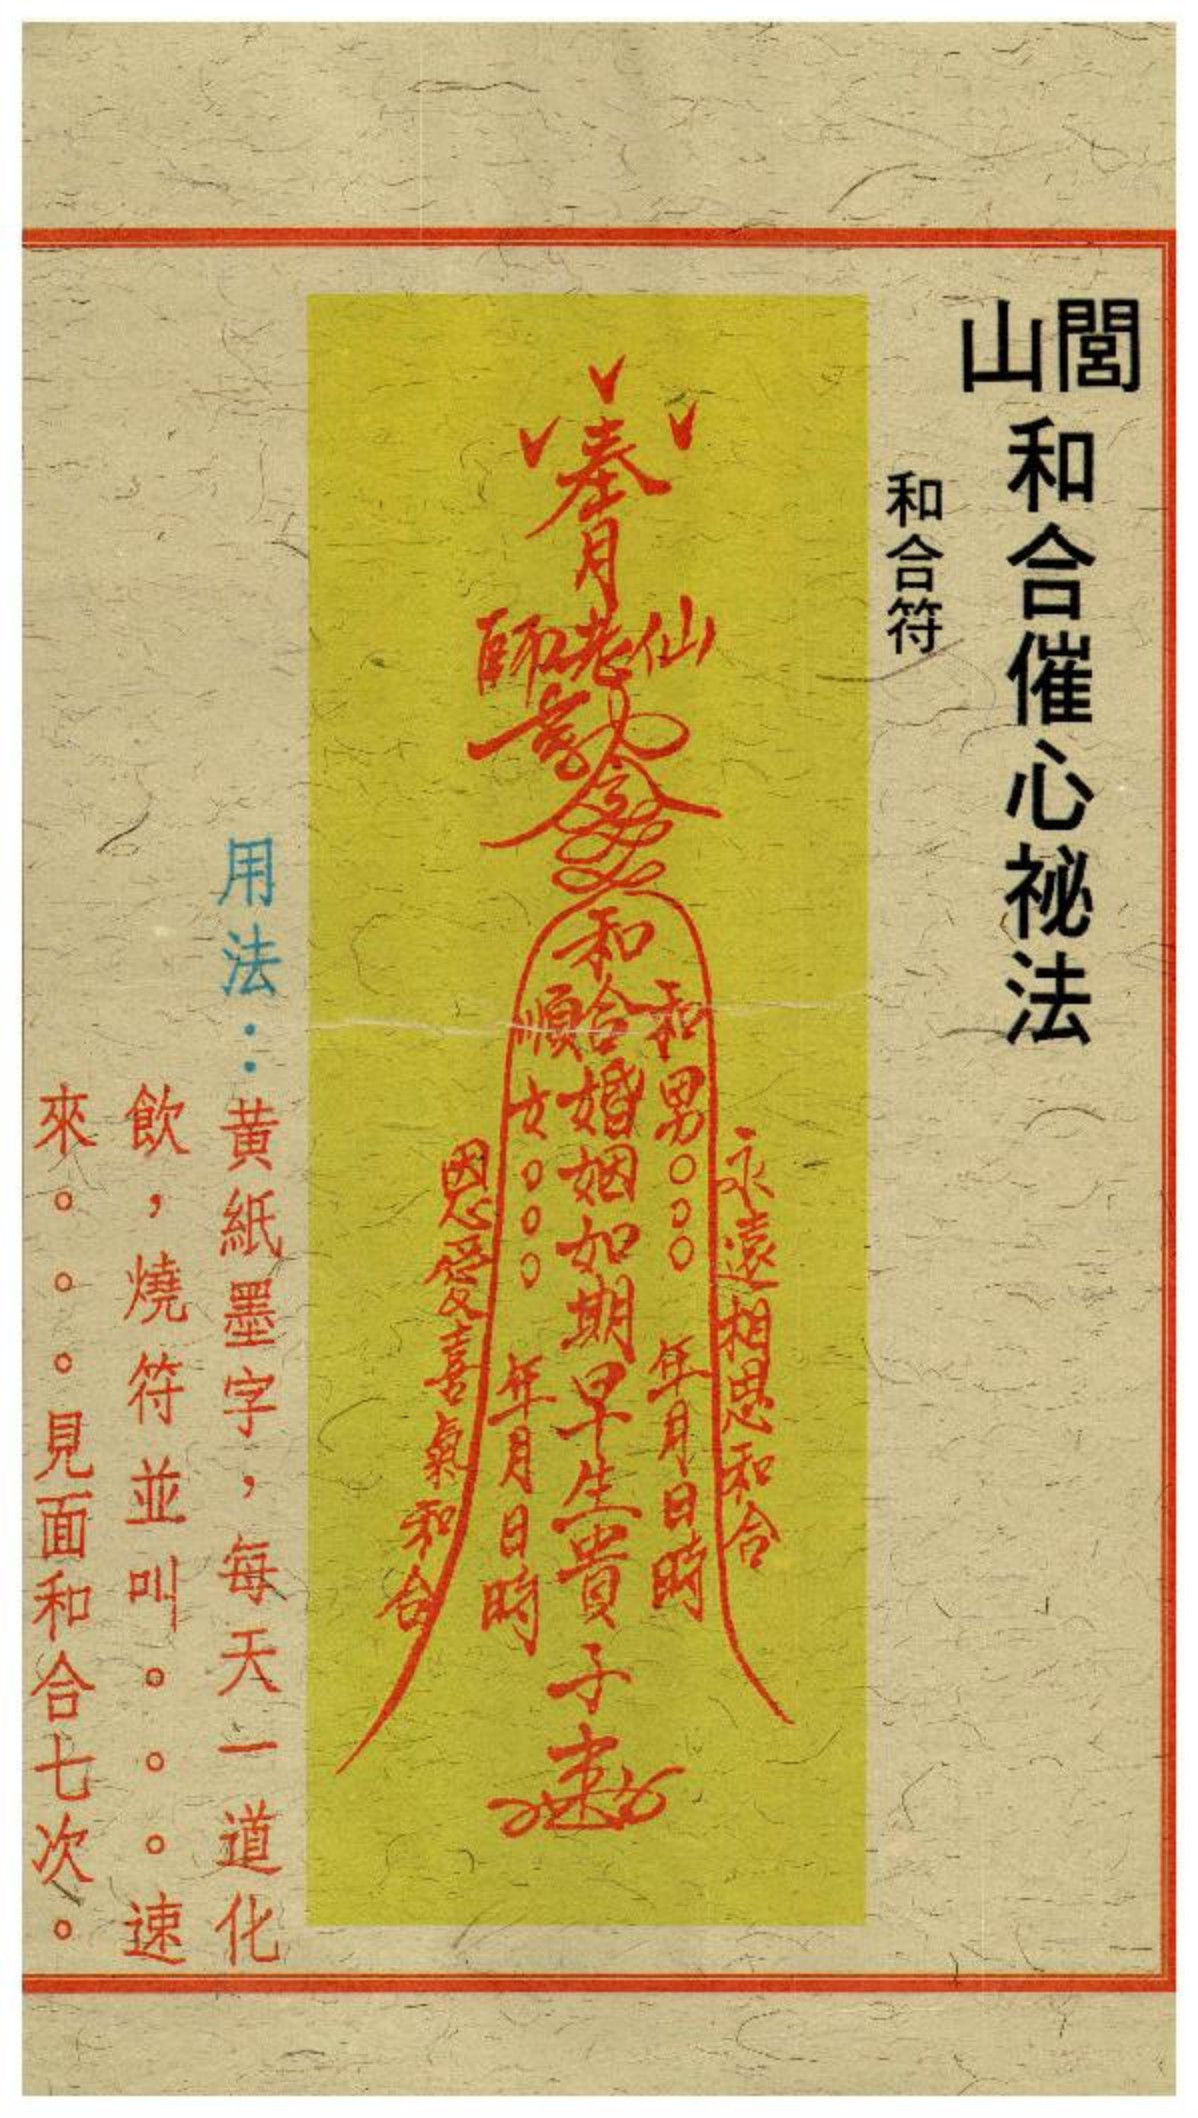 閭山和合催心祕法
和合符
奉月
仙老師
和合婚姻如期早生貴子
和男○○○ 年月日時
順女○○○ 年月日時
永遠相思和合
恩愛喜氣和合
用法：黃紙墨字，每天一道化
飲，燒符並叫。。。速
來。。。見面和合七次。